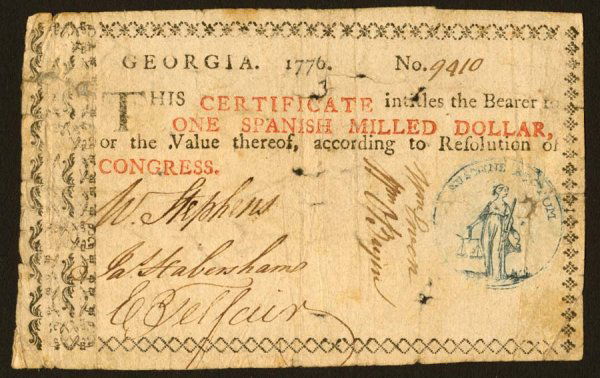 GEORGIA. 1776. No. 9410
THIS CERTIFICATE intitles the Bearer to
ONE SPANISH MILLED DOLLAR,
or the Value thereof, according to Reſolution of
CONGRESS.
SUSTINE RECTUM
W. Stephens
Jas Habersham
E Telfair